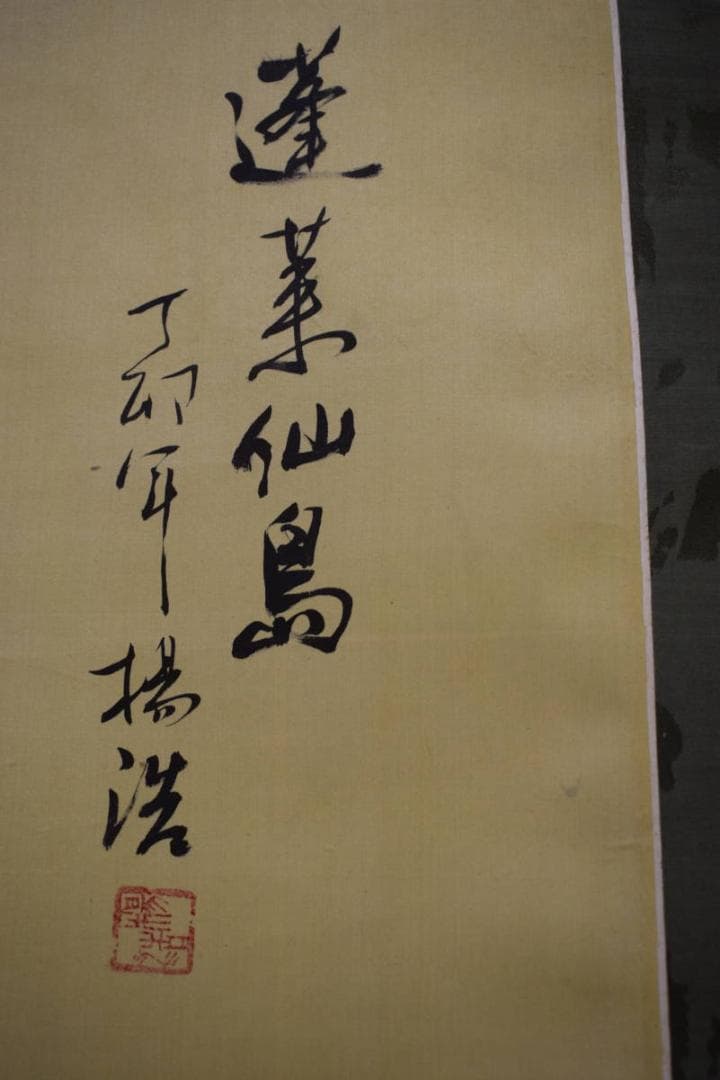 蓬莱仙島
丁卯年 楊浩